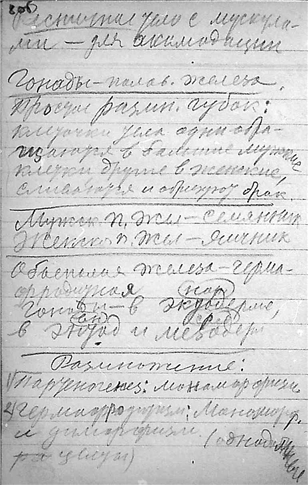 Ресничное тело с мускула-
ми — для акамодации
Гонады — полов. железа.
Процес размн. губок:
клеточки тела одни обра-
щаются в большие мужские
клетки другие в женские,
сливаются и образуют брак
Мужск. п. жел — семянник
Женск п. жел — яичник
Обоеполая железа — герма-
фродитная
Гонады — в эктодерме,
в энтод и мезодерм
Размножение:
1) Партеногенез: мономорфизм
2) Гермафродитизм: Мономорф.
и диморфизм
(однодомные